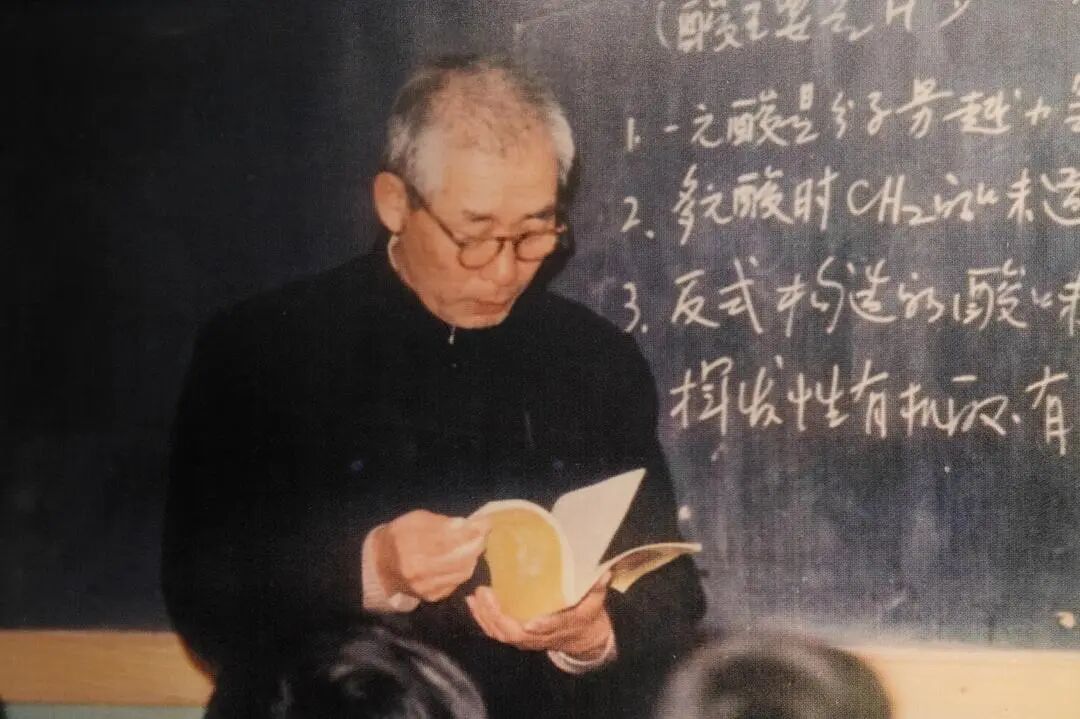 (酸主要是H
1. 一元酸是分子易越
2. 多元酸时CH2的味
3. 反式构造的酸味
挥发性有机酸、有